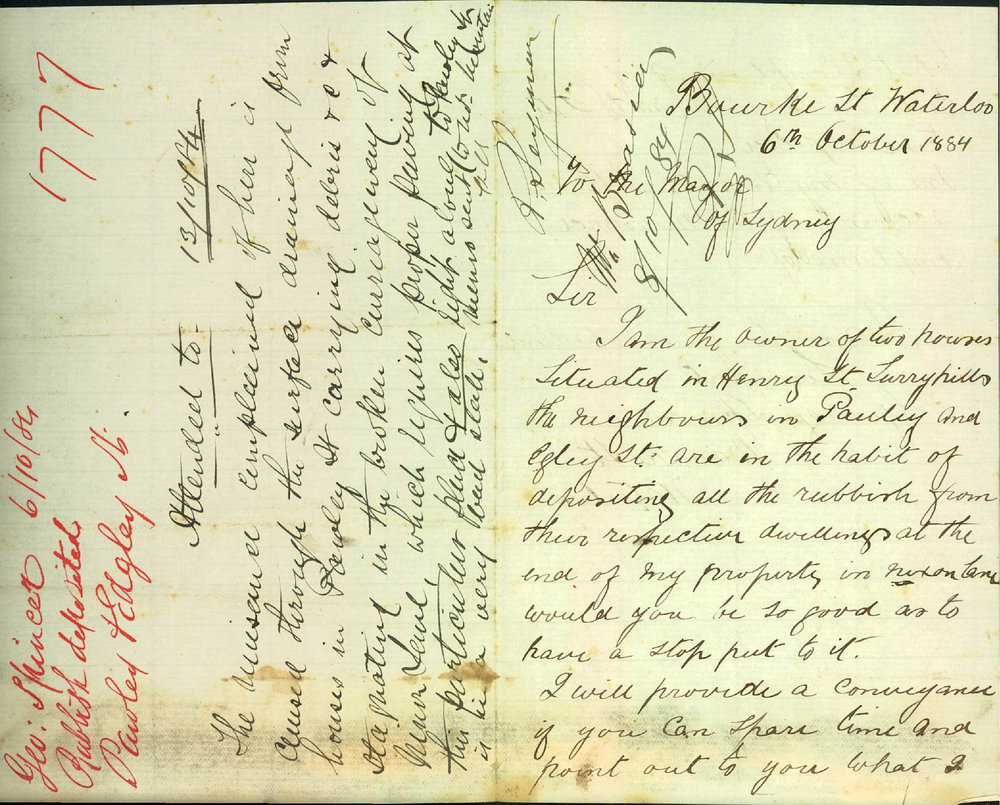 1777
Geo: Spincer 6/10/84
Rubbish deposited
Pawley & Edgley St.
Attended to 13/10/84
The nuisance complained of here is
caused through the surface drainage from
houses in Pawley St carrying debris &c &
stagnating in the broken carriageway of
Lane, which requires proper paving at
this particular place & also
is in a very bad state.
light along to Pawley St
memo sent to
R. Seymour
Bourke St Waterloo
6th October 1884
To the Mayor
of Sydney
8/10/84
Sir
I am the owner of two houses
Situated in Henry St Surryhills
the neighbours in Pauley and
Egley St. are in the habit of
depositing all the rubbish from
their respective dwellings at the
end of my property in nixon lane
would you be so good as to
have a stop put to it.
I will provide a conveyance
if you can spare time and
point out to you what I